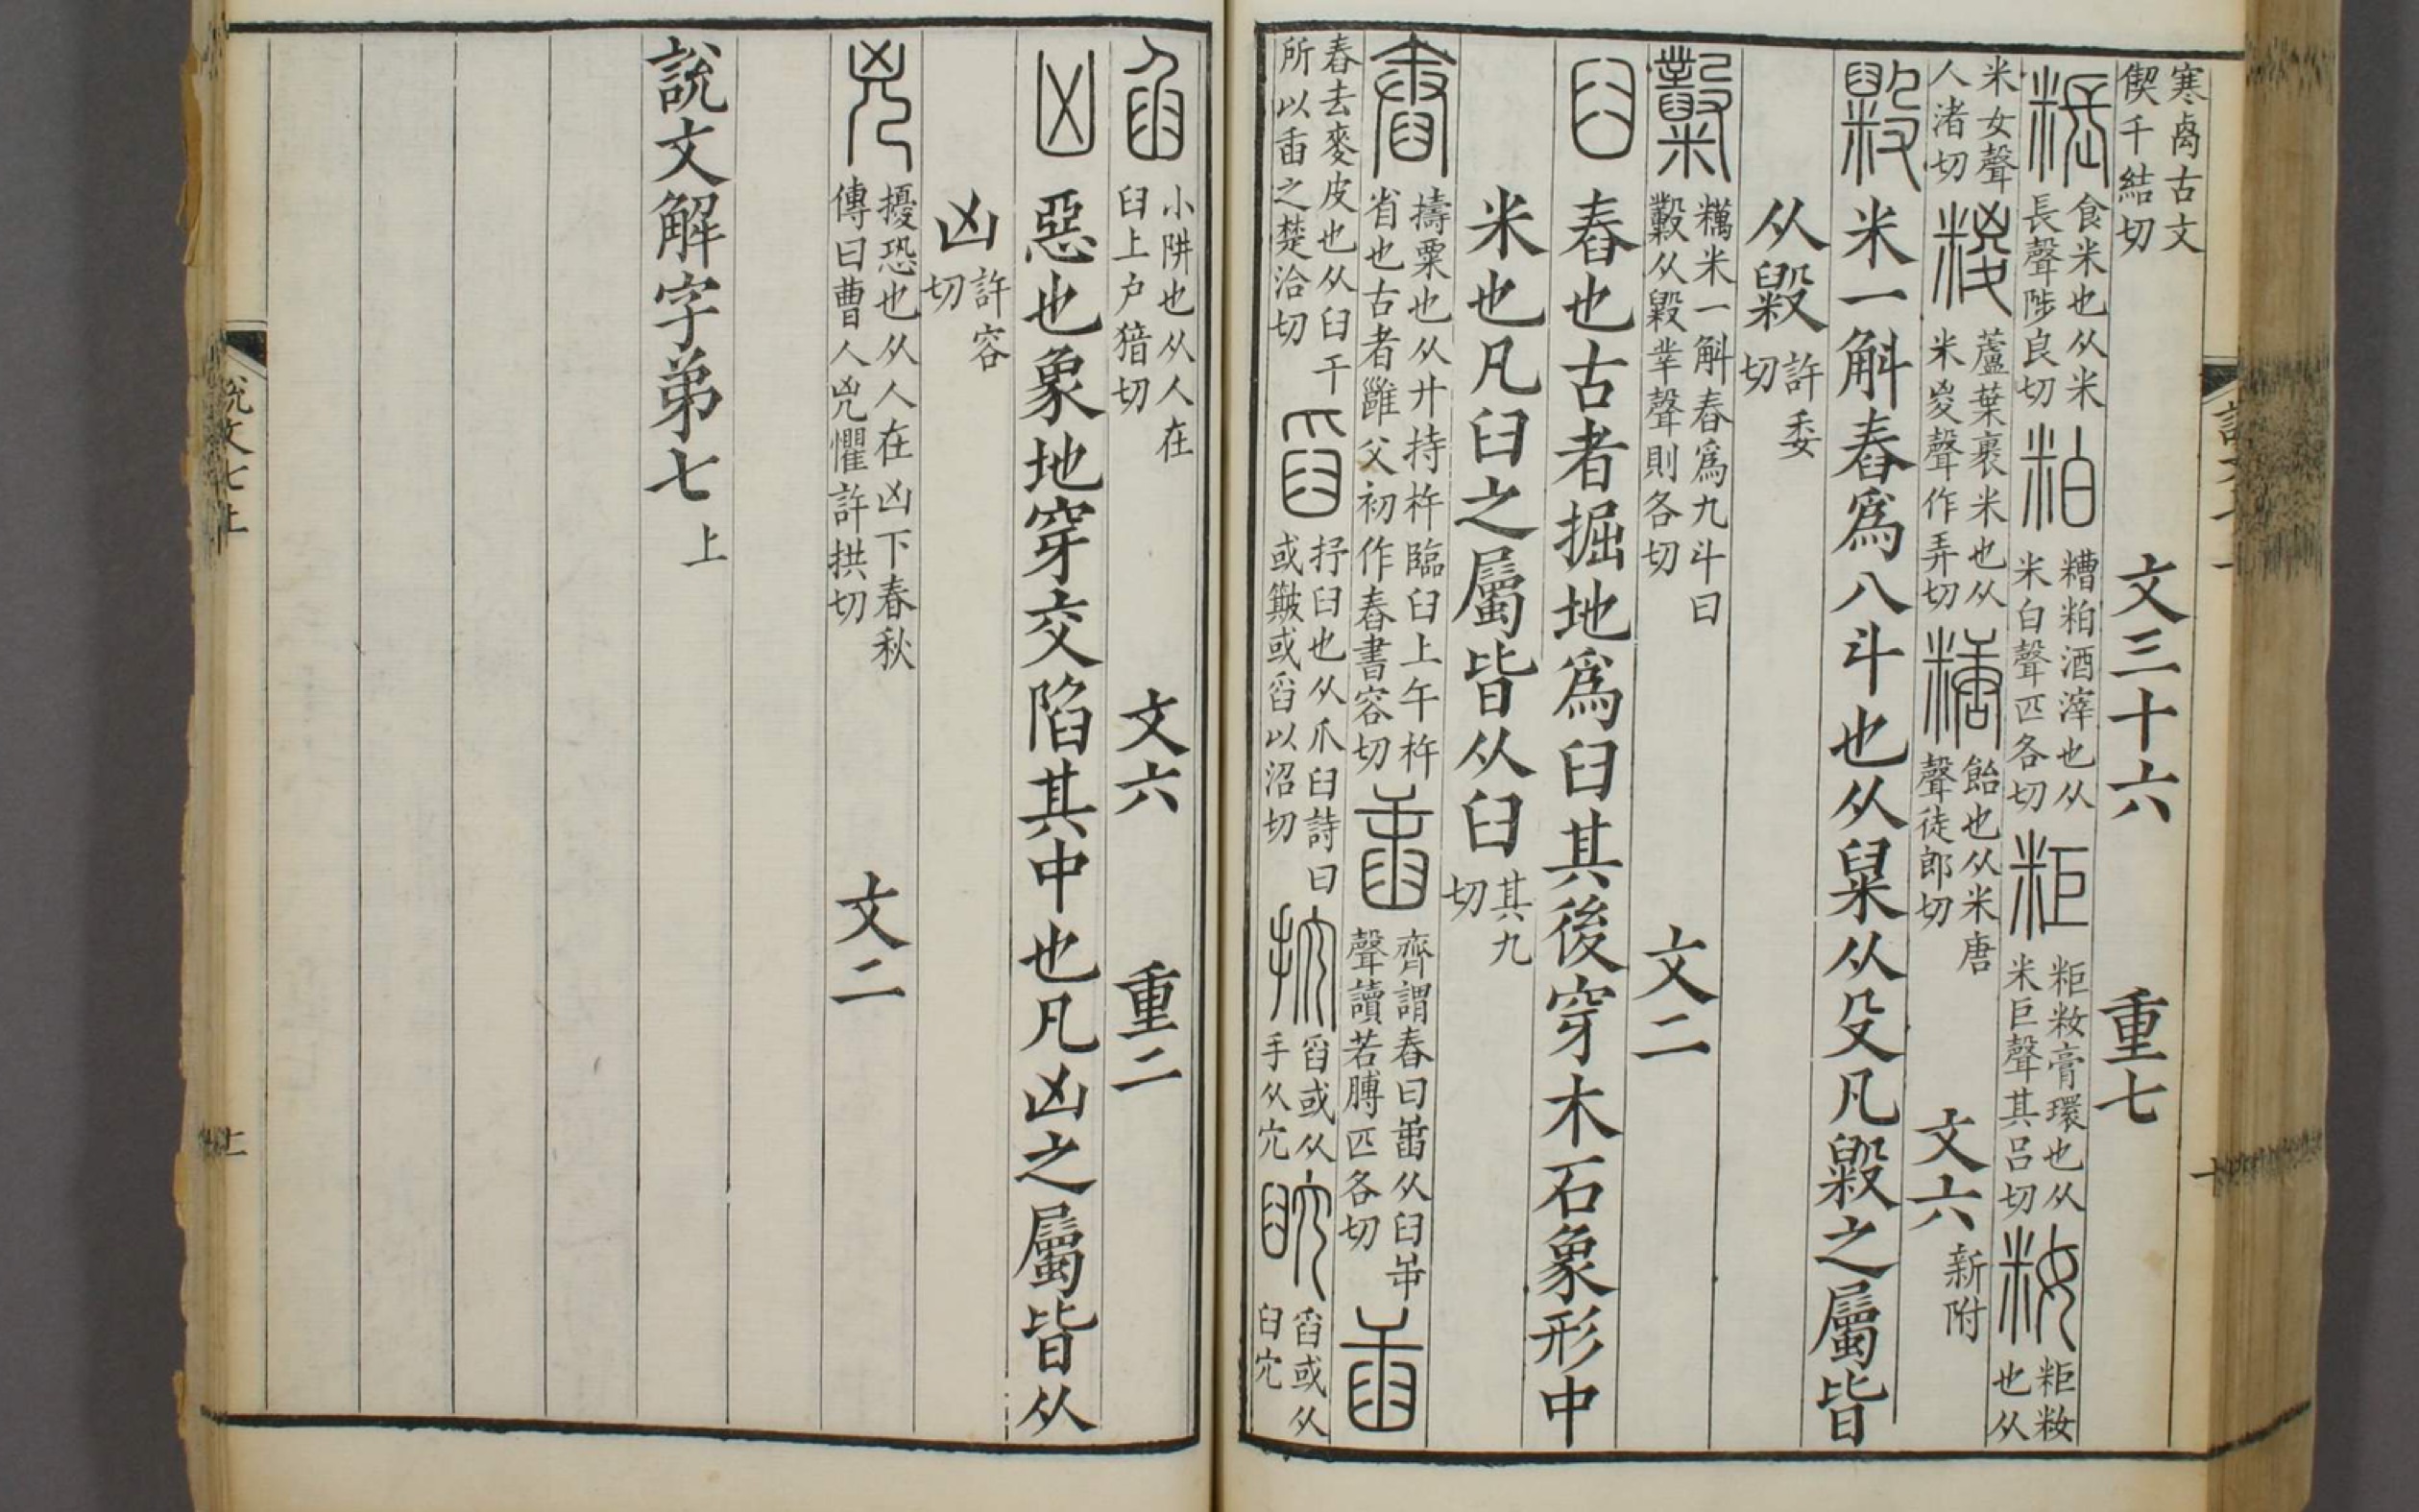 寒卨古文
偰千結切
文三十六
重七
粻
食米也从米
長聲陟良切
粕
糟粕酒滓也从
米白聲匹各切
粔
粔籹膏環也从
米巨聲其呂切
籹
粔籹
也从
米女聲
人渚切
糉
蘆葉裹米也从
米㚇聲作弄切
糖
飴也从米唐
聲徒郎切
文六
新附
毇
米一斛舂爲八斗也从𣫞从殳凡毇之屬皆
从毇
許委
切
糳
糲米一斛舂爲九斗曰
糳从毇丵聲則各切
文二
臼
舂也古者掘地爲臼其後穿木石象形中
米也凡臼之屬皆从臼
其九
切
舂
擣粟也从廾持杵臨臼上午杵
省也古者雝父初作舂書容切
𦥻
齊謂舂曰𦥻从臼屰
聲讀若膊匹各切
臿
舂去麥皮也从臼干
所以臿之楚洽切
舀
抒臼也从爪臼詩曰
或簸或舀以沼切
抭
舀或从
手从宂
𦥽
舀或从
臼宂
臽
小阱也从人在
臼上户猪切
文六
重二
凶
惡也象地穿交陷其中也凡凶之屬皆从
凶
許容
切
兇
擾恐也从人在凶下春秋
傳曰曹人兇懼許拱切
文二
說文解字弟七
上
說文七上